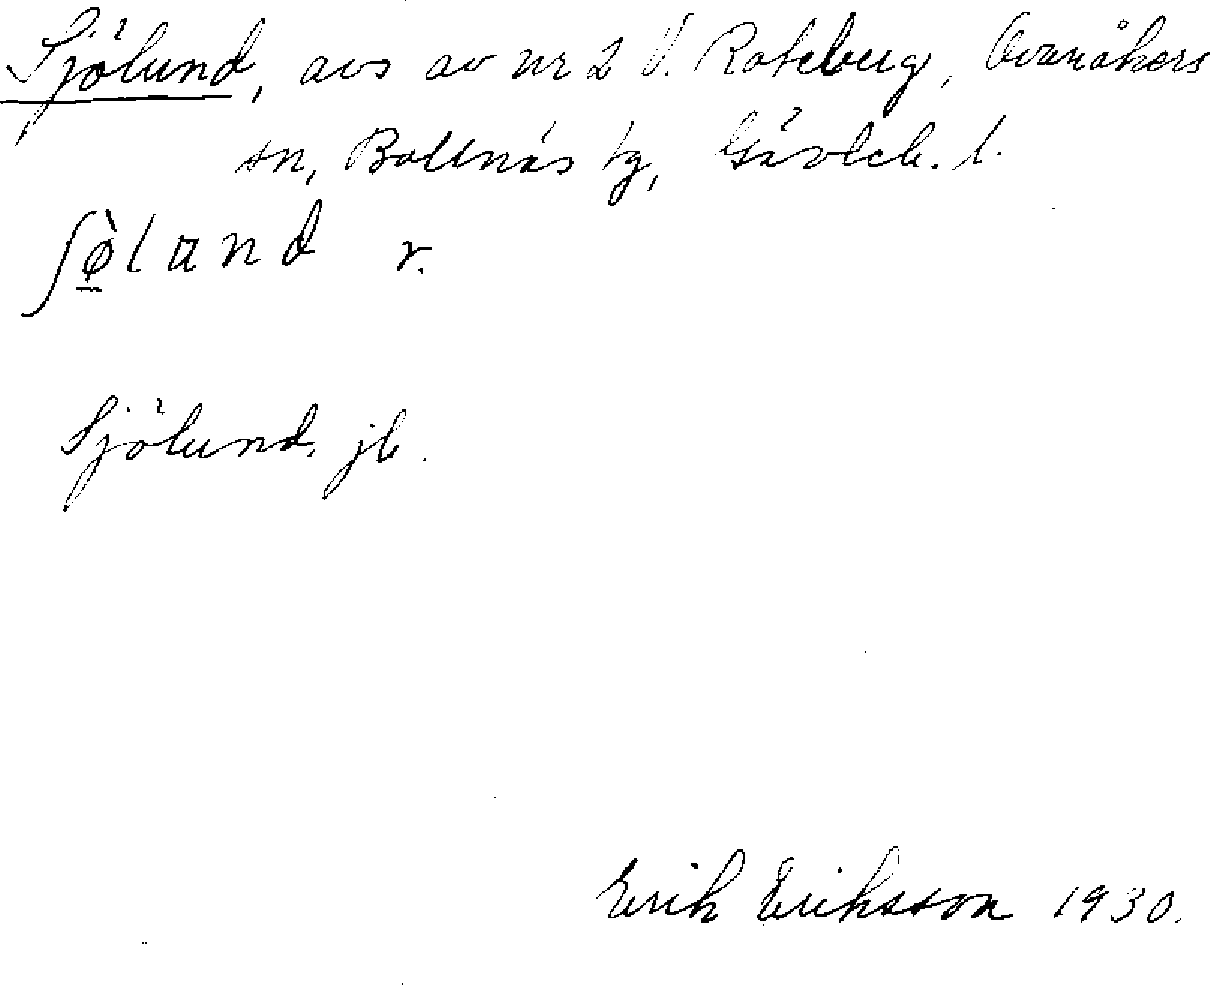 Sjölund, avs av nr 2 V. Roteberg, Ovanåkers
sn, Bollnäs tg, Gävleb. l.
ʃø̀lund v.
Sjölund. jb.
Erik Eriksson 1930.